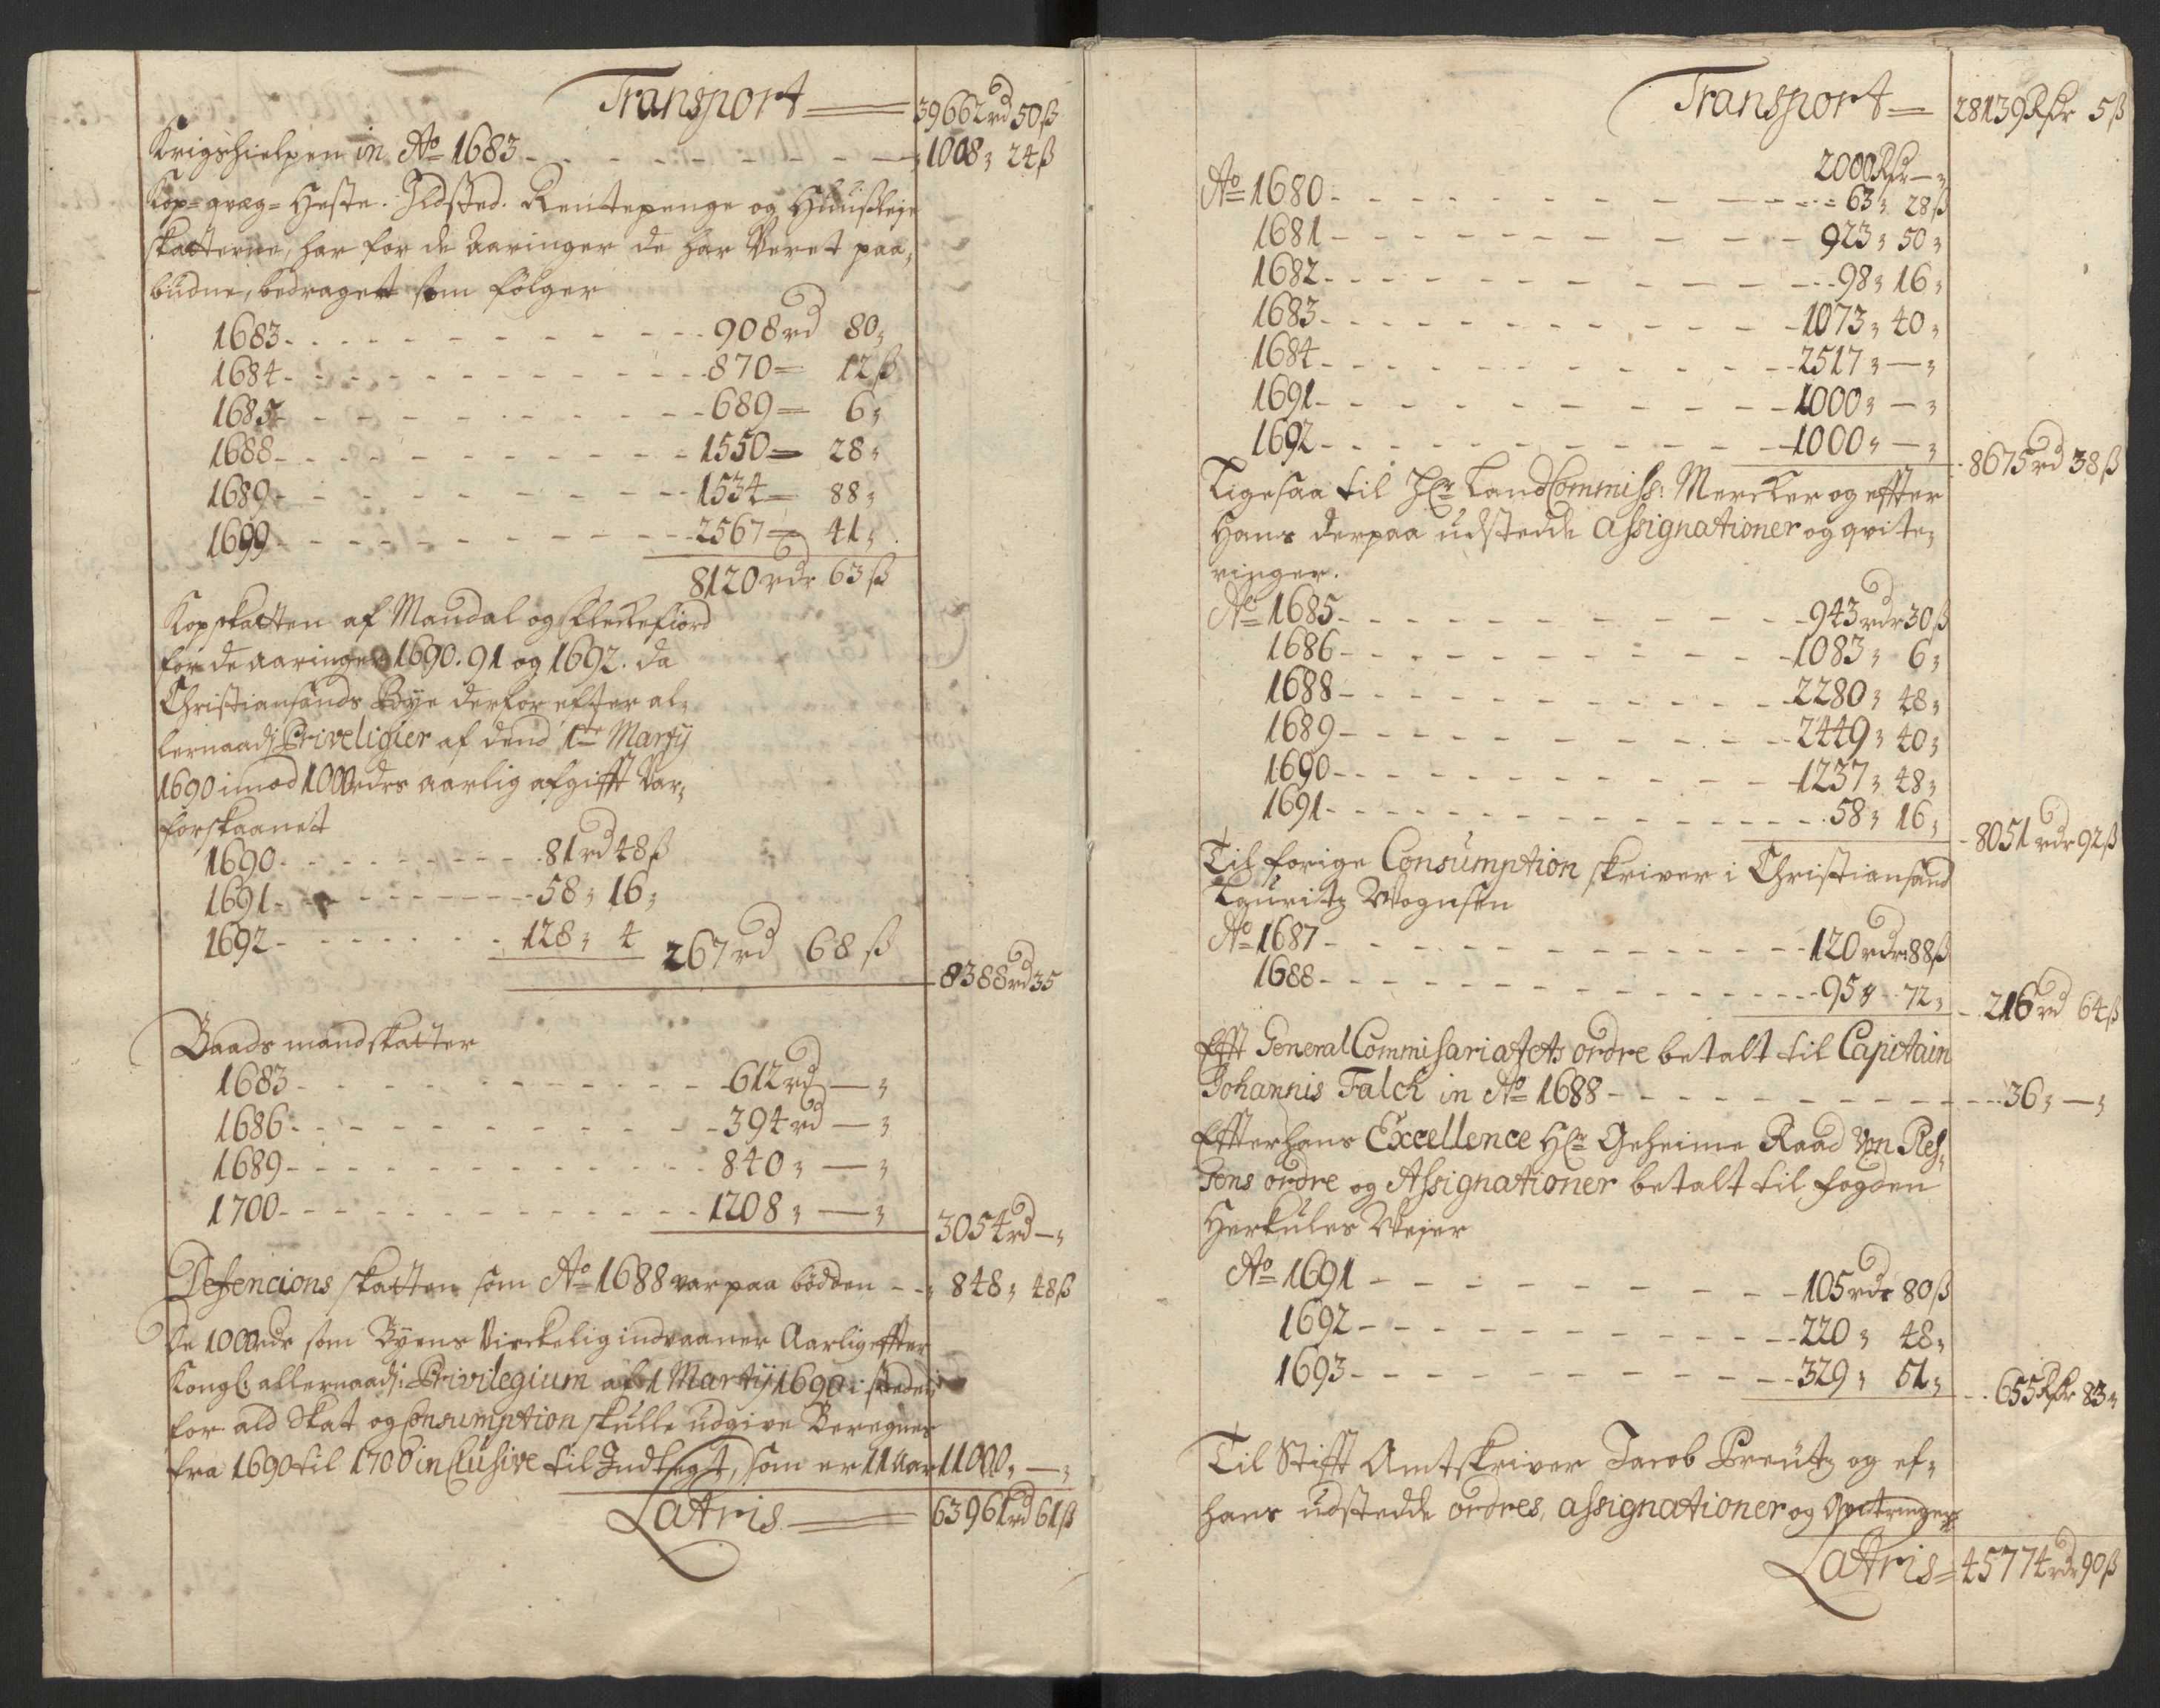 Transport 39662 rd 50 ß
Krigshielpen in Ao 1683 1008 „ 24 ß
Kop- qvæg- Heste. Ildsted. Rentepenge og Huusleje
skatterne, har for de Aaringer de har Veret paa,
budne, bedraget som følger
1683 908 rd 80 „
1684 870 = 12 ß
1685 689 = 6 „
1688 1550 = 28 „
1689 1534 = 88 „
1699 2567 = 41 „
8120 rdr 63 ß
Kopskatten af Mandal og Fleckefiord
for de aaringer 1690. 91 og 1692. da
Christiansands Bye derfor efter al,
lernaadj Priveligier af dend 1te Martij
1690 imod 1000 rdrs aarlig afgifft Var,
forskaanet
1690 81 rd 48 ß
1691 58 „ 16 „
1692 128 „ 4 267 rd 68 ß
8388 rd 35
Baadsmandskatter
1683 612 rd — „
1686 394 rd — „
1689 840 „ — „
1700 1208 „ — „
3054 rd — „
Defencions skatten som Ao 1688 var paa bødden 848 „ 48 ß
De 1000 rdr som Byens Virckelig indvaaner Aarlig effter
Kongl: allernaadj: Privilegium af 1 Martij 1690 i steden
for ald Skat og Consumption skulle udgive Beregnes
fra 1690 til 1700 inclusive til Indtegt, som er 11 Aar 11000 „ — „
Latris 63961 rd 61 ß
Transport 28139 Rdr 5 ß
2000 Rdr — „
Ao 1680 63 „ 28 ß
1681 923 „ 50 „
1682 98 „ 16 „
1683 1073 „ 40 „
1684 2517 „ — „
1691 1000 „ — „
1692 1000 „ — „
8675 rd 38 ß
Ligesaa til Hr LandCommiss: Mercker og effter
Hans derpaa udstedde assignationer og qvite,
ringer.
Ao 1685 943 rdr 30 ß
1686 1083 „ 6 „
1688 2280 „ 48 „
1689 2449 „ 40 „
1690 1237 „ 48 „
1691 58 „ 16 „
8051 rdr 92 ß
Til forige Consumption skriver i Christiansand
Lauritz Wognsen
Ao 1687 120 rdr 88 ß
1688 95 „ 72 „
216 rd 64 ß
Efft General Commisariatets ordre betalt til Capitain
Johannis Falck in Ao 1688 36 „ — „
Effter hans Excellence Hr Geheime Raad Von Res,
sens ordre og Assignationer betalt til fogden
Herkules Weier
Ao 1691 105 rdr 80 ß
1692 220 „ 48 „
1693 329 „ 51 „
655 Rdr 83 „
Til Stifft Amtskriver Jacob Preutz og ef,
hans udstedde ordres, assignationer og Qvitringer
Latris = 45774 rdr 90 ß